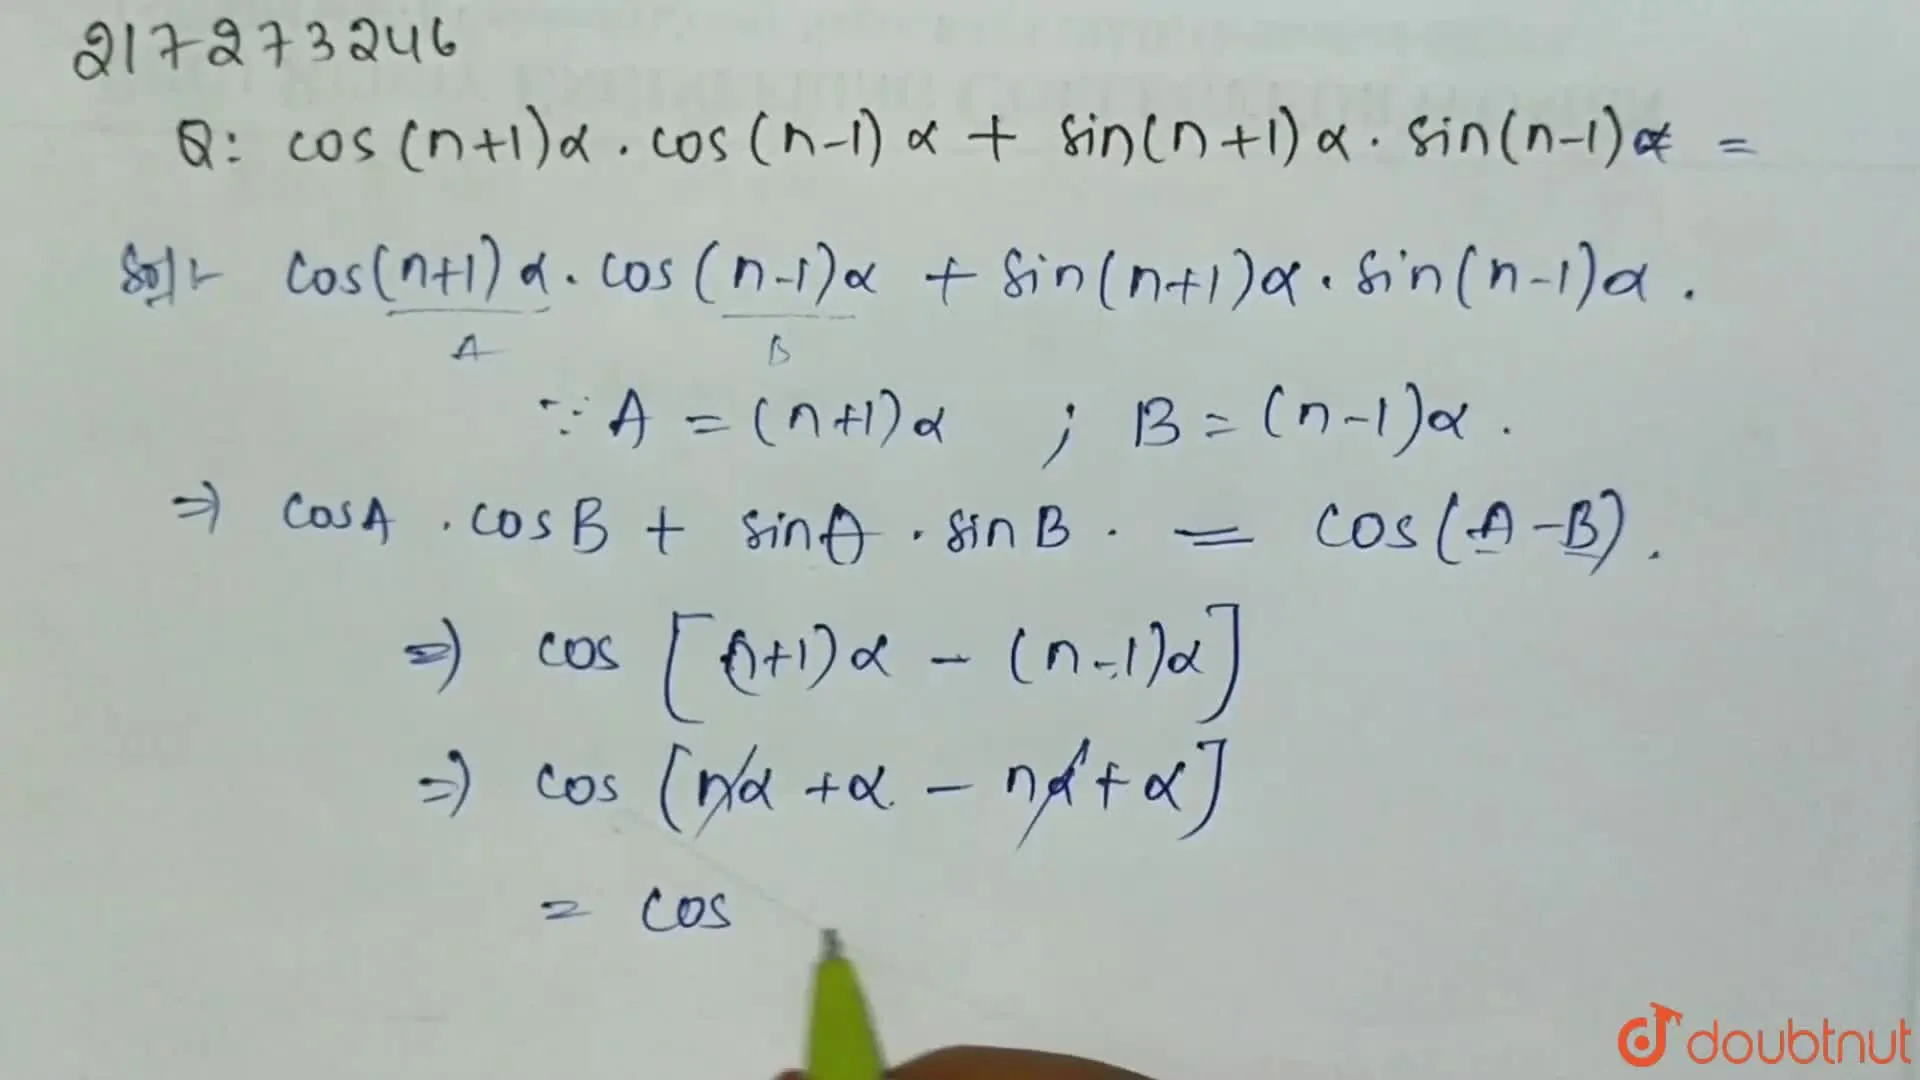 217273246
Q: cos(n+1)α . cos(n-1)α + sin(n+1)α . sin(n-1)α =
Sol:- cos(n+1)α . cos(n-1)α + sin(n+1)α . sin(n-1)α .
A B
∵ A = (n+1)α ; B = (n-1)α .
⇒ cosA . cosB + sinA . sinB . = cos(A-B) .
⇒ cos [(n+1)α - (n-1)α]
⇒ cos [nα + α - nα + α]
= cos
doubtnut